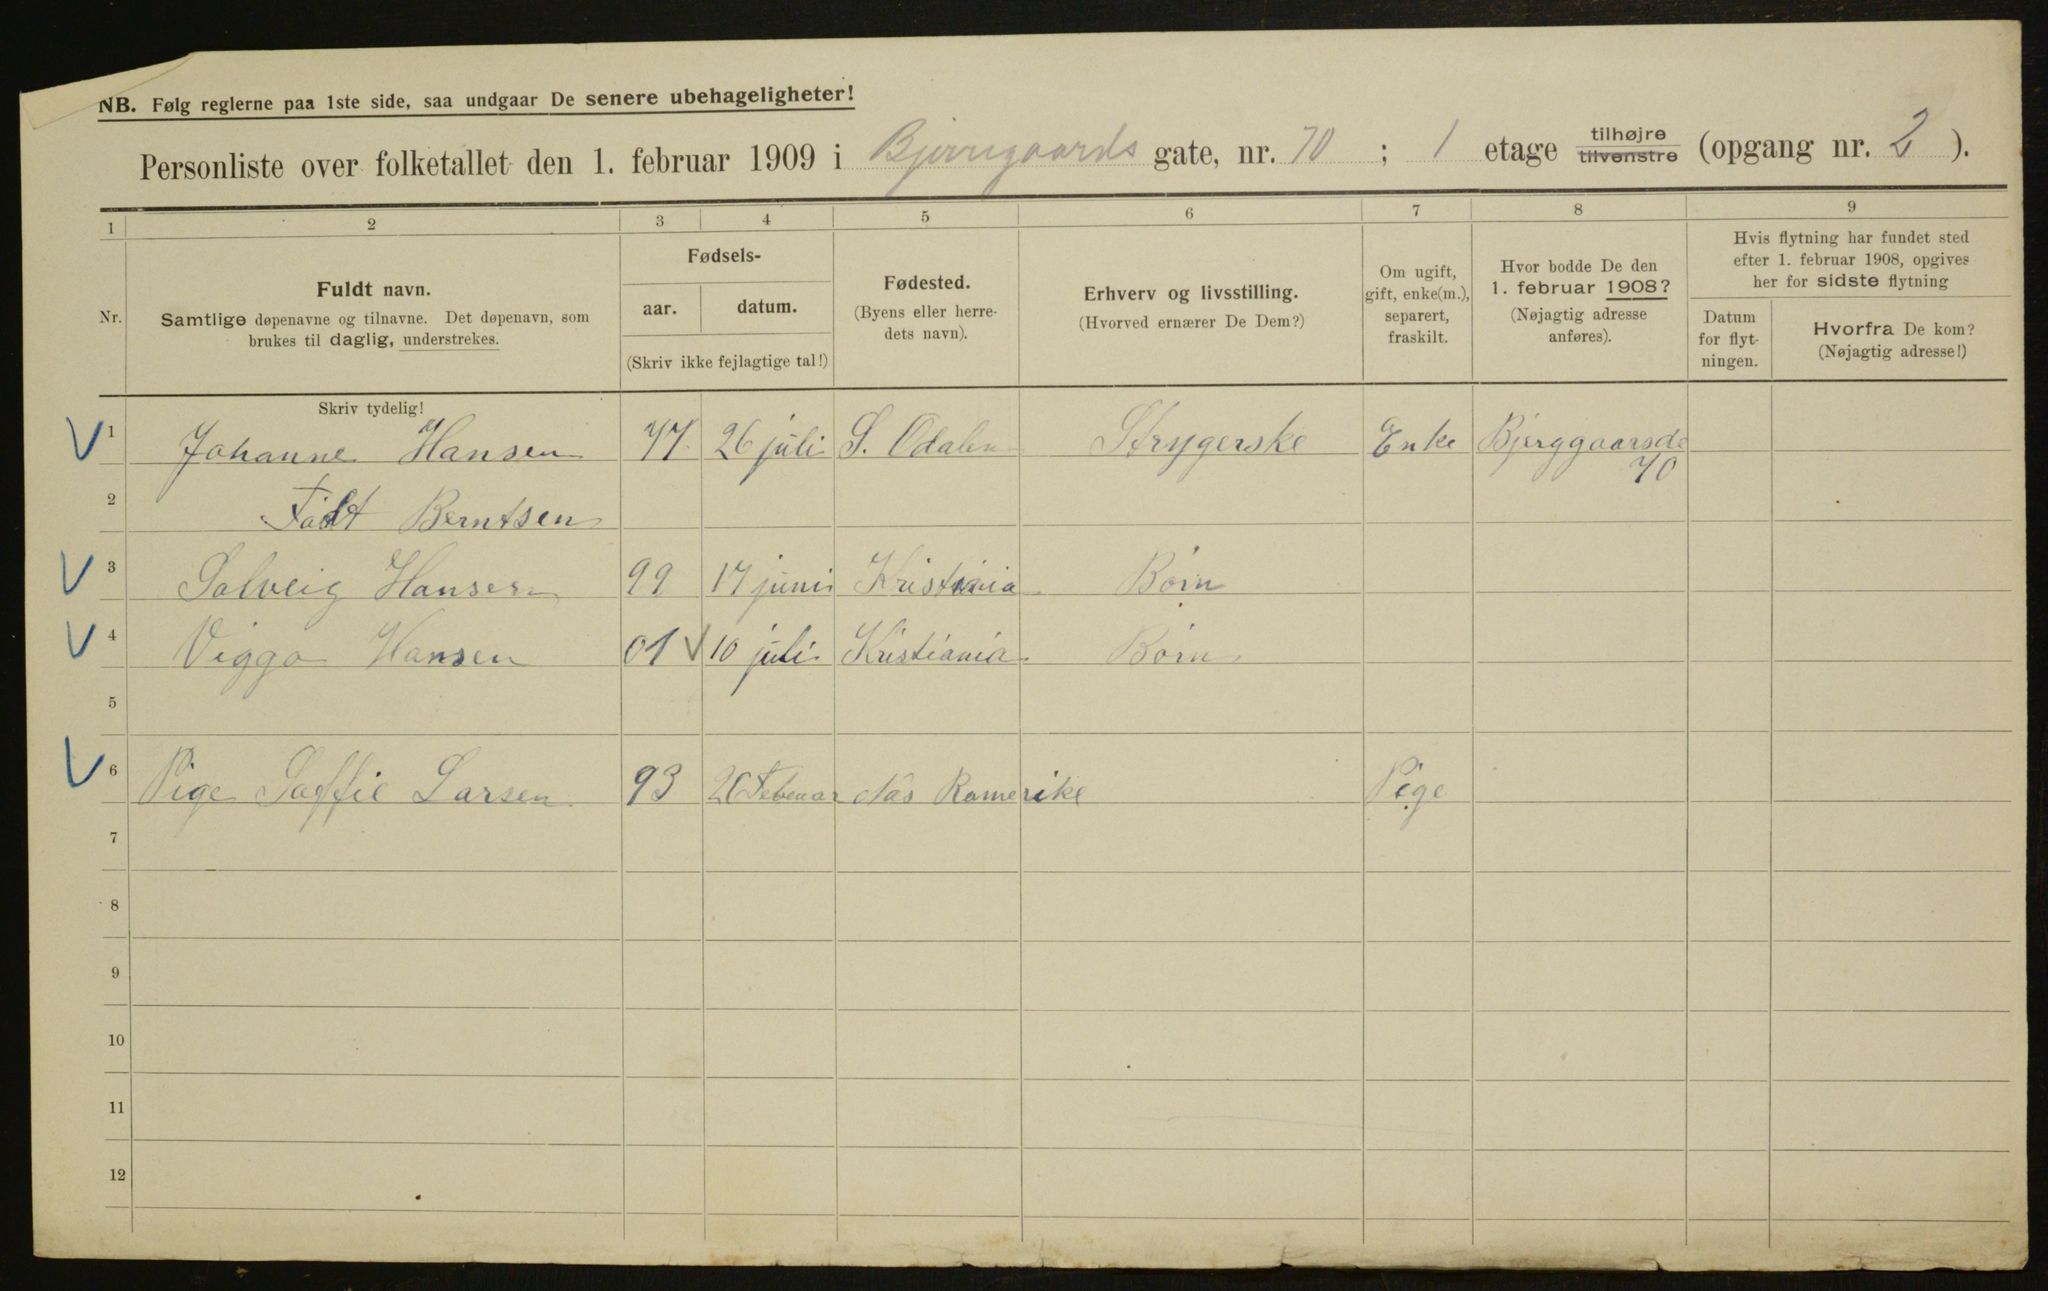 NB. Følg reglerne paa 1ste side, saa undgaar De senere ubehageligheter!
Personliste over folketallet den 1. februar 1909 i Bjerregaards gate, nr. 70 ; 1 etage tilhøjre tilvenstre (opgang nr. 2 ).
1 2 3 4 5 6 7 8 9
Nr.
Fuldt navn.
Samtlige døpenavne og tilnavne. Det døpenavn, som
brukes til daglig, understrekes.
Skriv tydelig!
Fødsels-
aar. datum.
(Skriv ikke fejlagtige tal!)
Fødested.
(Byens eller herre-
dets navn).
Erhverv og livsstilling.
(Hvorved ernærer De Dem?)
Om ugift,
gift, enke(m.),
separert,
fraskilt.
Hvor bodde De den
1. februar 1908?
(Nøjagtig adresse
anføres).
Hvis flytning har fundet sted
efter 1. februar 1908, opgives
her for sidste flytning
Datum
for flyt-
ningen.
Hvorfra De kom?
(Nøjagtig adresse!)
1 Johanne Hansen 77 26 juli S. Odalen Strygerske Enke Bjerggaarsde
70
2 Født Berntsen
3 Solveig Hansen 99 17 juni Kristiania Børn
4 Viggo Hansen 01 10 juli Kristiania Børn
5
6 Pige Soffie Larsen 93 Romerike Pige
7
8
9
10
11
12